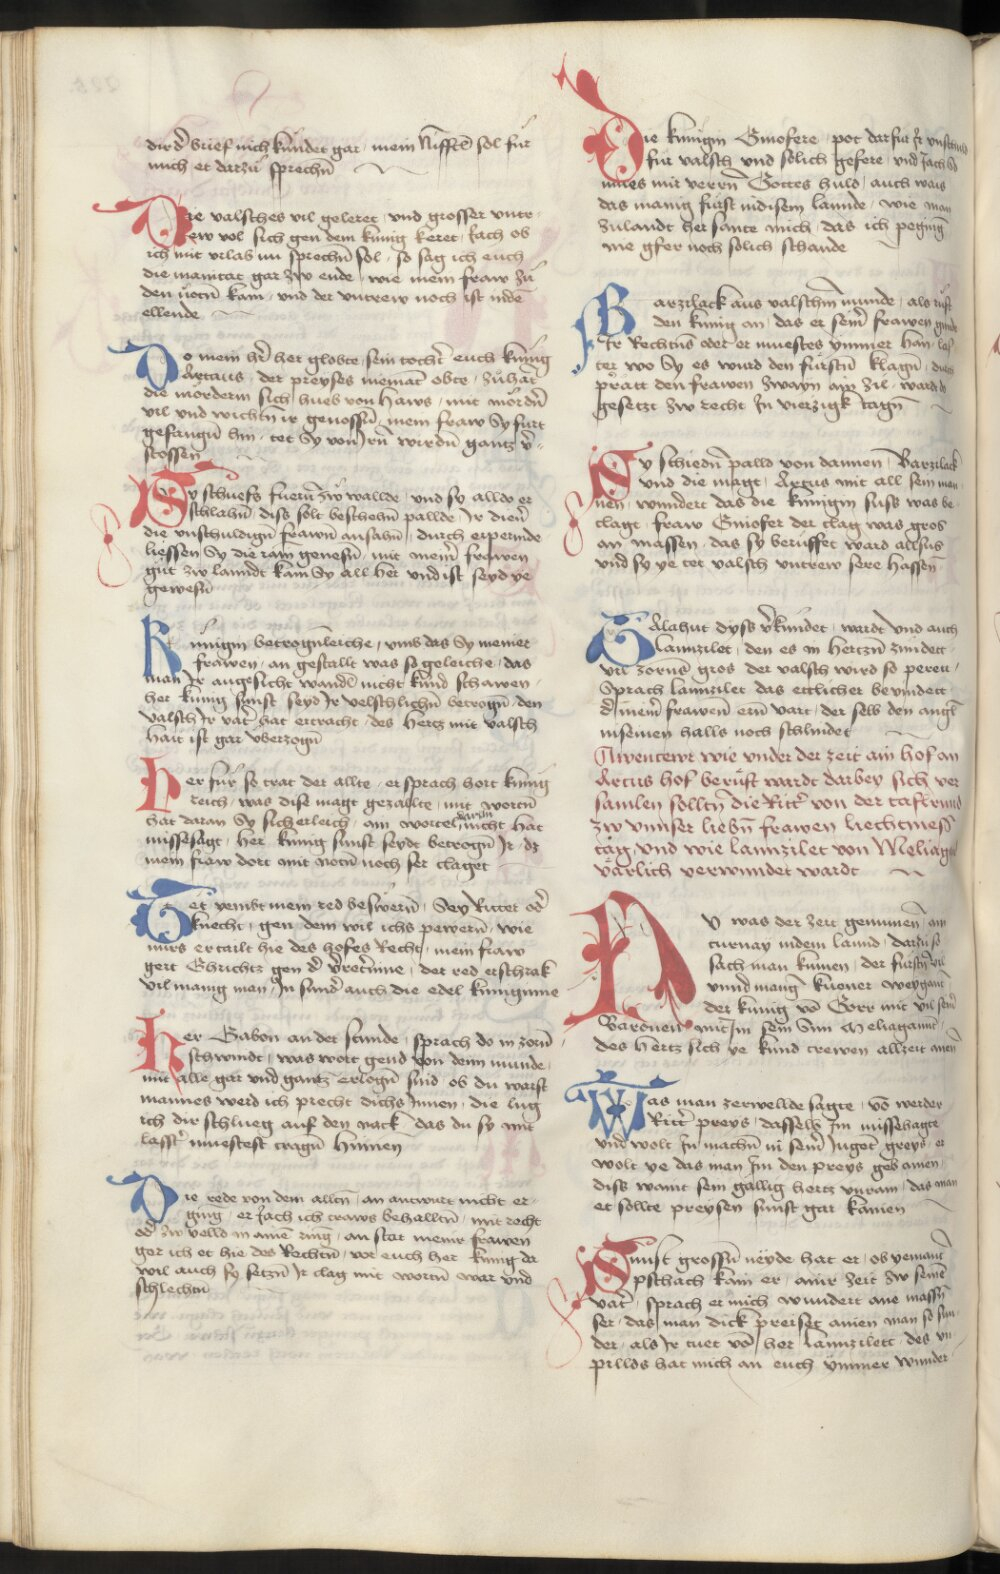 dir d' brief nich kúndet gar · mein Nifftē sol fúr
mich er darzú sprechn̄
Die valsches vil geleret · vnd grosser vntr-
ew vol sich gen dem kunig keret · Jach ob
ich mit vrlab nu sprechn̄ sol · so sag ich euch
die maintat gar zw ende · wie mein fraw zú
den nötn̄ kam · vnd der vntrew noch ist inde
ellende
Do mein hr̄ het globte · sein tocht' euch kunig
Artaus · der preyses niemāt obte · zúhāt
die mörderin sich hueb von Haws · mit mördn̄
vil vnd wichtn̄ ir genossn̄ · mein fraw Sy furt
gefangn̄ hin · tet Sy von Jrn̄ wirdn̄ gantz v'-
stossen
Sy schuefs fuern̄ zẃ wallde · vnd sy alldo er
schlahn̄ · diss solt beschehn̄ pallde · Jr dien'
die vnschuldign̄ frawn̄ ansahn̄ · durch erpermde
liessen Sy die rain genesn̄ · mit mein' frawen
gút zw lanndt kam Sy all her vnd ist seyd ye
gewesn̄
Kúnigin betrogn̄leiche · vmb das Sy meiner
frawen · an gestallt was so geleiche · das
man Jr angesicht wandē nicht kund schawen ·
her kunig sunst seyd Jr velschlichn̄ betrogn̄ · den
valsch Jr vat' hat ertracht · des Hertz mit valsch
hait ist gar vberzogn̄
Her fúr so trat der allte · er sprach hort kunig
reich · was dise magt gezallte · mit wortn̄
hat daran Sy sicherleich · ain wortel darin nicht hat
missesagt · her kunig sunst seydt betrogn̄ Jr · dz
mein fraw dort mit notn̄ noch ser claget
Tet yembt mein red beswern̄ · Sey Ritter od'
knecht · gen dem wil ichs pewern̄ · wie
mirs ertailt hie des hofes Recht · mein fraw
gert Ghrichtz gen d' v'retrinne · der red erschrak
vil manig man · Jn sund' auch die edel kuniginne
Her Gabon an der stunde · sprach do in zorn̄
schwindt · was wort gend von deim munde ·
mit alle gar vnd gantz erlogn̄ sind · ob du warst
mannes werd ich precht dichs Jnnen · die lug
ich dir schlueg auf den nack · das du sy mit
lasst' muestest tragn̄ hinnen
Die rede von dem alltn̄ · an antwurt nicht er-
ging · er Jach ich traws behalltn̄ · mit recht
od' zw velld in ainē ring · an stat meinr frawen
ger ich et hie des Rechtn̄ · vor euch her kunig da
wil auch sy setzn̄ Jr clag mit wortn̄ war vnd
schlechtn̄
Die kunigin Ginofere · pot darfur Jr vnschuld
fur valsch vnd solich gefere · vnd Jach So
mues mir verrn̄ Gottes huld · auch wais
das manig furst indisem lannde · wie man
zulandt her sante mich · das ich peging
nie gfer noch solich schande
Barzilack aus valschm̄ munde · als ruft
den kunig an · das er sein' frawen gunde
Jr Rechtns oder er muestes ymmer han las-
ter wo Sy es wurd den furstn̄ klagn̄ ·
pratt den frawen zwayn ain zil · ward do
gesetzt zw recht Jn vierzigk tagn̄
Sy schiedn̄ palld von dannen · Barzilack
vnd die magt · Artus mit all sein man-
nen · wundert das die kunigin suss was be-
clagt · fraw Ginofer der clag was gros
an massen · das sy beruffet ward allsus
vnd sy ye tet valsch vntrew sere hassen
Galahut dyss v'kundet · wardt vnd auch
lannzilet · den es in hertzn̄ zundett ·
vil zorns gros der valsch wird so perett ·
Sprach lannzilet das ettlicher bevindett
d' mein' frawen ern̄ vart · der selb den angl
inseinen halls noch schlindet
Awentewr wie vnder der zeit ain hof an
Artus hof berúfft wardt darbey sich ver
samlen sollty die Ritt' von der tafelrund
zw vnnser liebn̄ frawen liechtmess
tag vnd wie lannzilet von Meliagan
värlich verwundet wardt
Nv was der zeit genumen · ain
turnay indem lannd · darzú so
sach man kumen · der fursty vil
vnnd mang kuoner weygant
der kunig vō Gorr mit vil sein'
Baronen · mit Jm sein Sun Meliagannt ·
des hertz sich ye kund trewen allzeit anen
Was man zerwellde sagte · vō werder
Ritt' preys · dasselb Jm missehagte
vnd wolt Jn machn̄ in sein' Juget greys · er
wolt ye das man Jm den preys geb ainen ·
diss wannt sein gállig hertz vnrain · das man
et sollte preysen sunst gar kainen
Sunst grossn̄ neyde hat er · ob yemant
pschach kain er · ainr zeit zw seinē
vat' · sprach er mich wundert ane massn̄
ser · das man dick preiset ainen man so sun-
der · als Jr tuet vō her lannzilett · des vn-
pillds hat mich an euch ymmer wunder